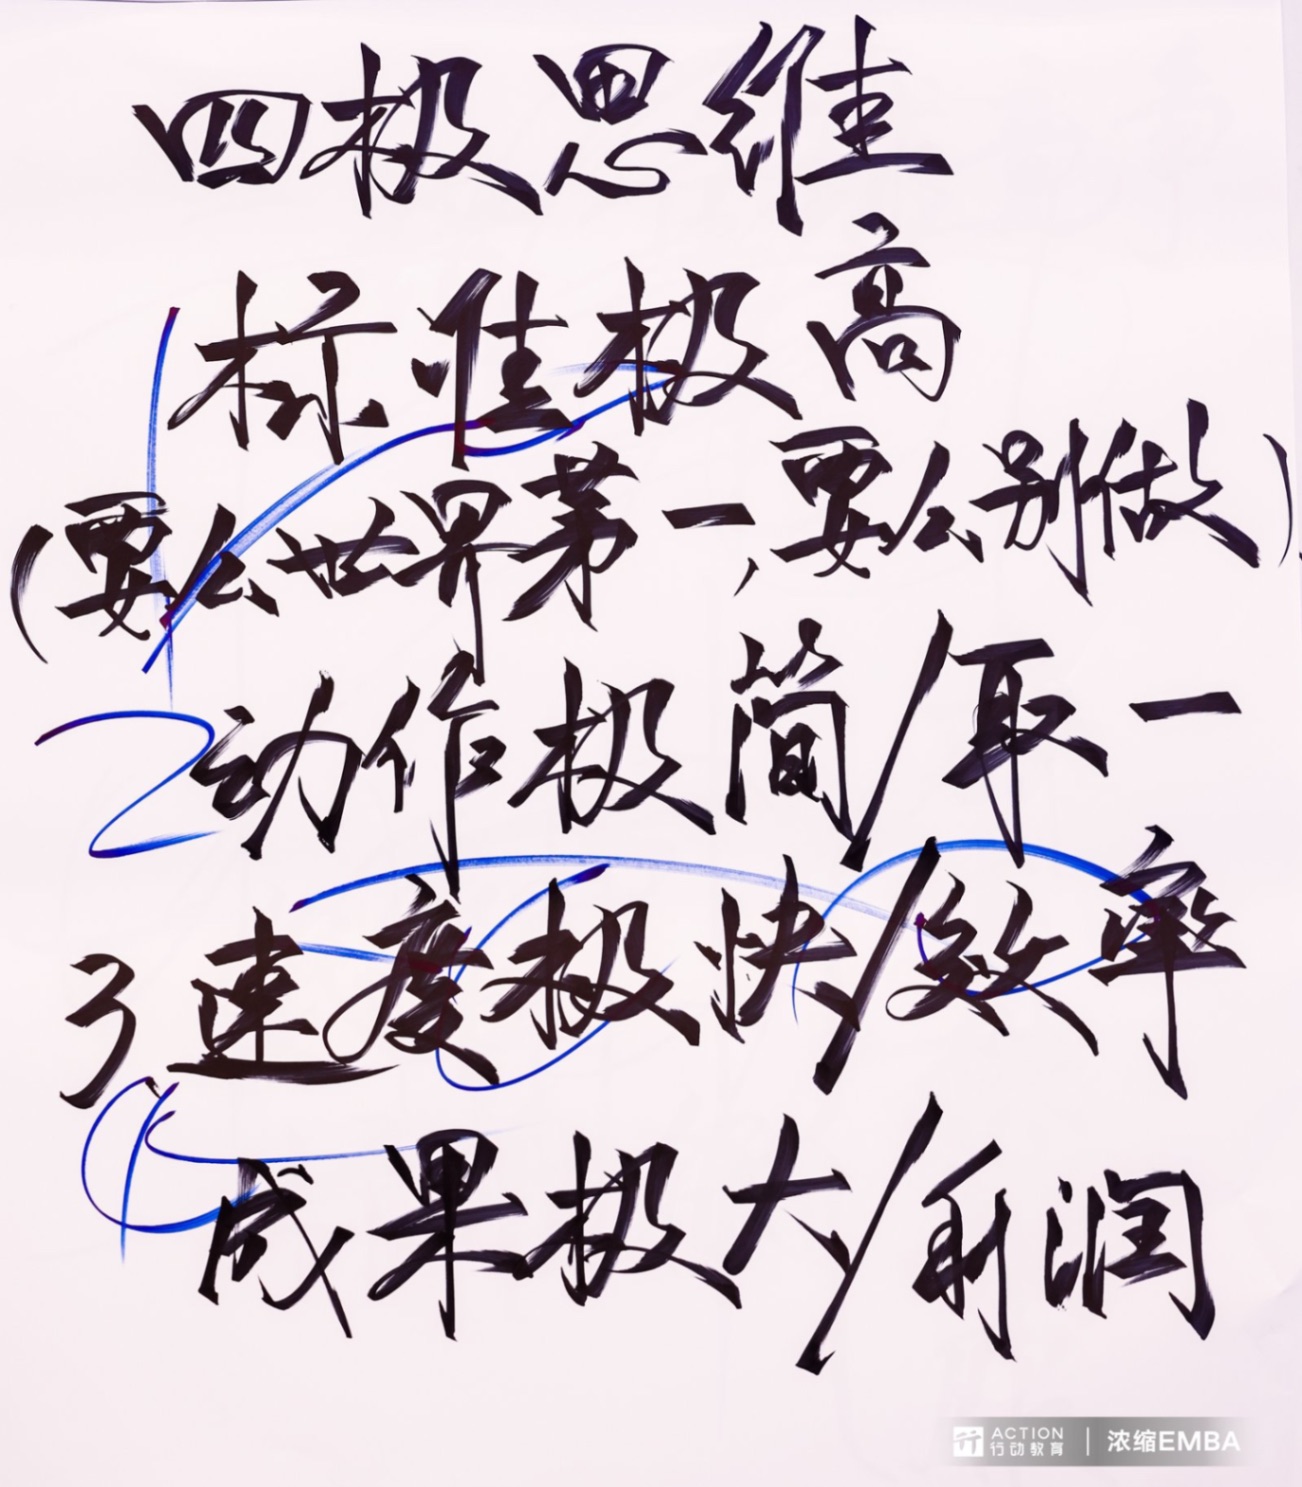 四极思维
1 标准极高
(要么世界第一,要么别做)
2 动作极简/取一
3 速度极快/效率
4 成果极大/利润
ACTION
行动教育 | 浓缩EMBA